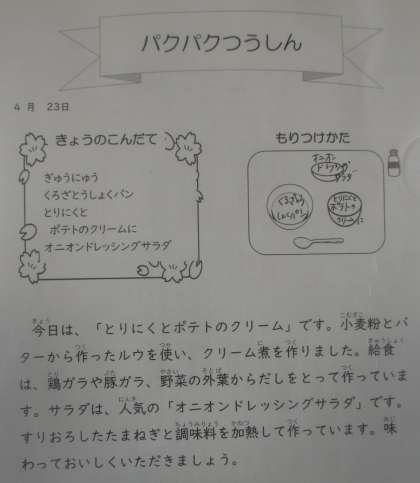 パクパクつうしん
4 月 23日
きょうのこんだて
ぎゅうにゅう
くろざとうしょくパン
とりにくと
ポテトのクリームに
オニオンドレッシングサラダ
もりつけかた
オニオン
ドレッシング
サラダ
くろざとう
しょくパン
とりにくと
ポテトの
クリームに
今日は、「とりにくとポテトのクリーム」です。小麦粉とバ
ターから作ったルウを使い、クリーム煮を作りました。給食
は、鶏ガラや豚ガラ、野菜の外葉からだしをとって作っていま
す。サラダは、人気の「オニオンドレッシングサラダ」です。
すりおろしたたまねぎと調味料を加熱して作っています。味
わっておいしくいただきましょう。